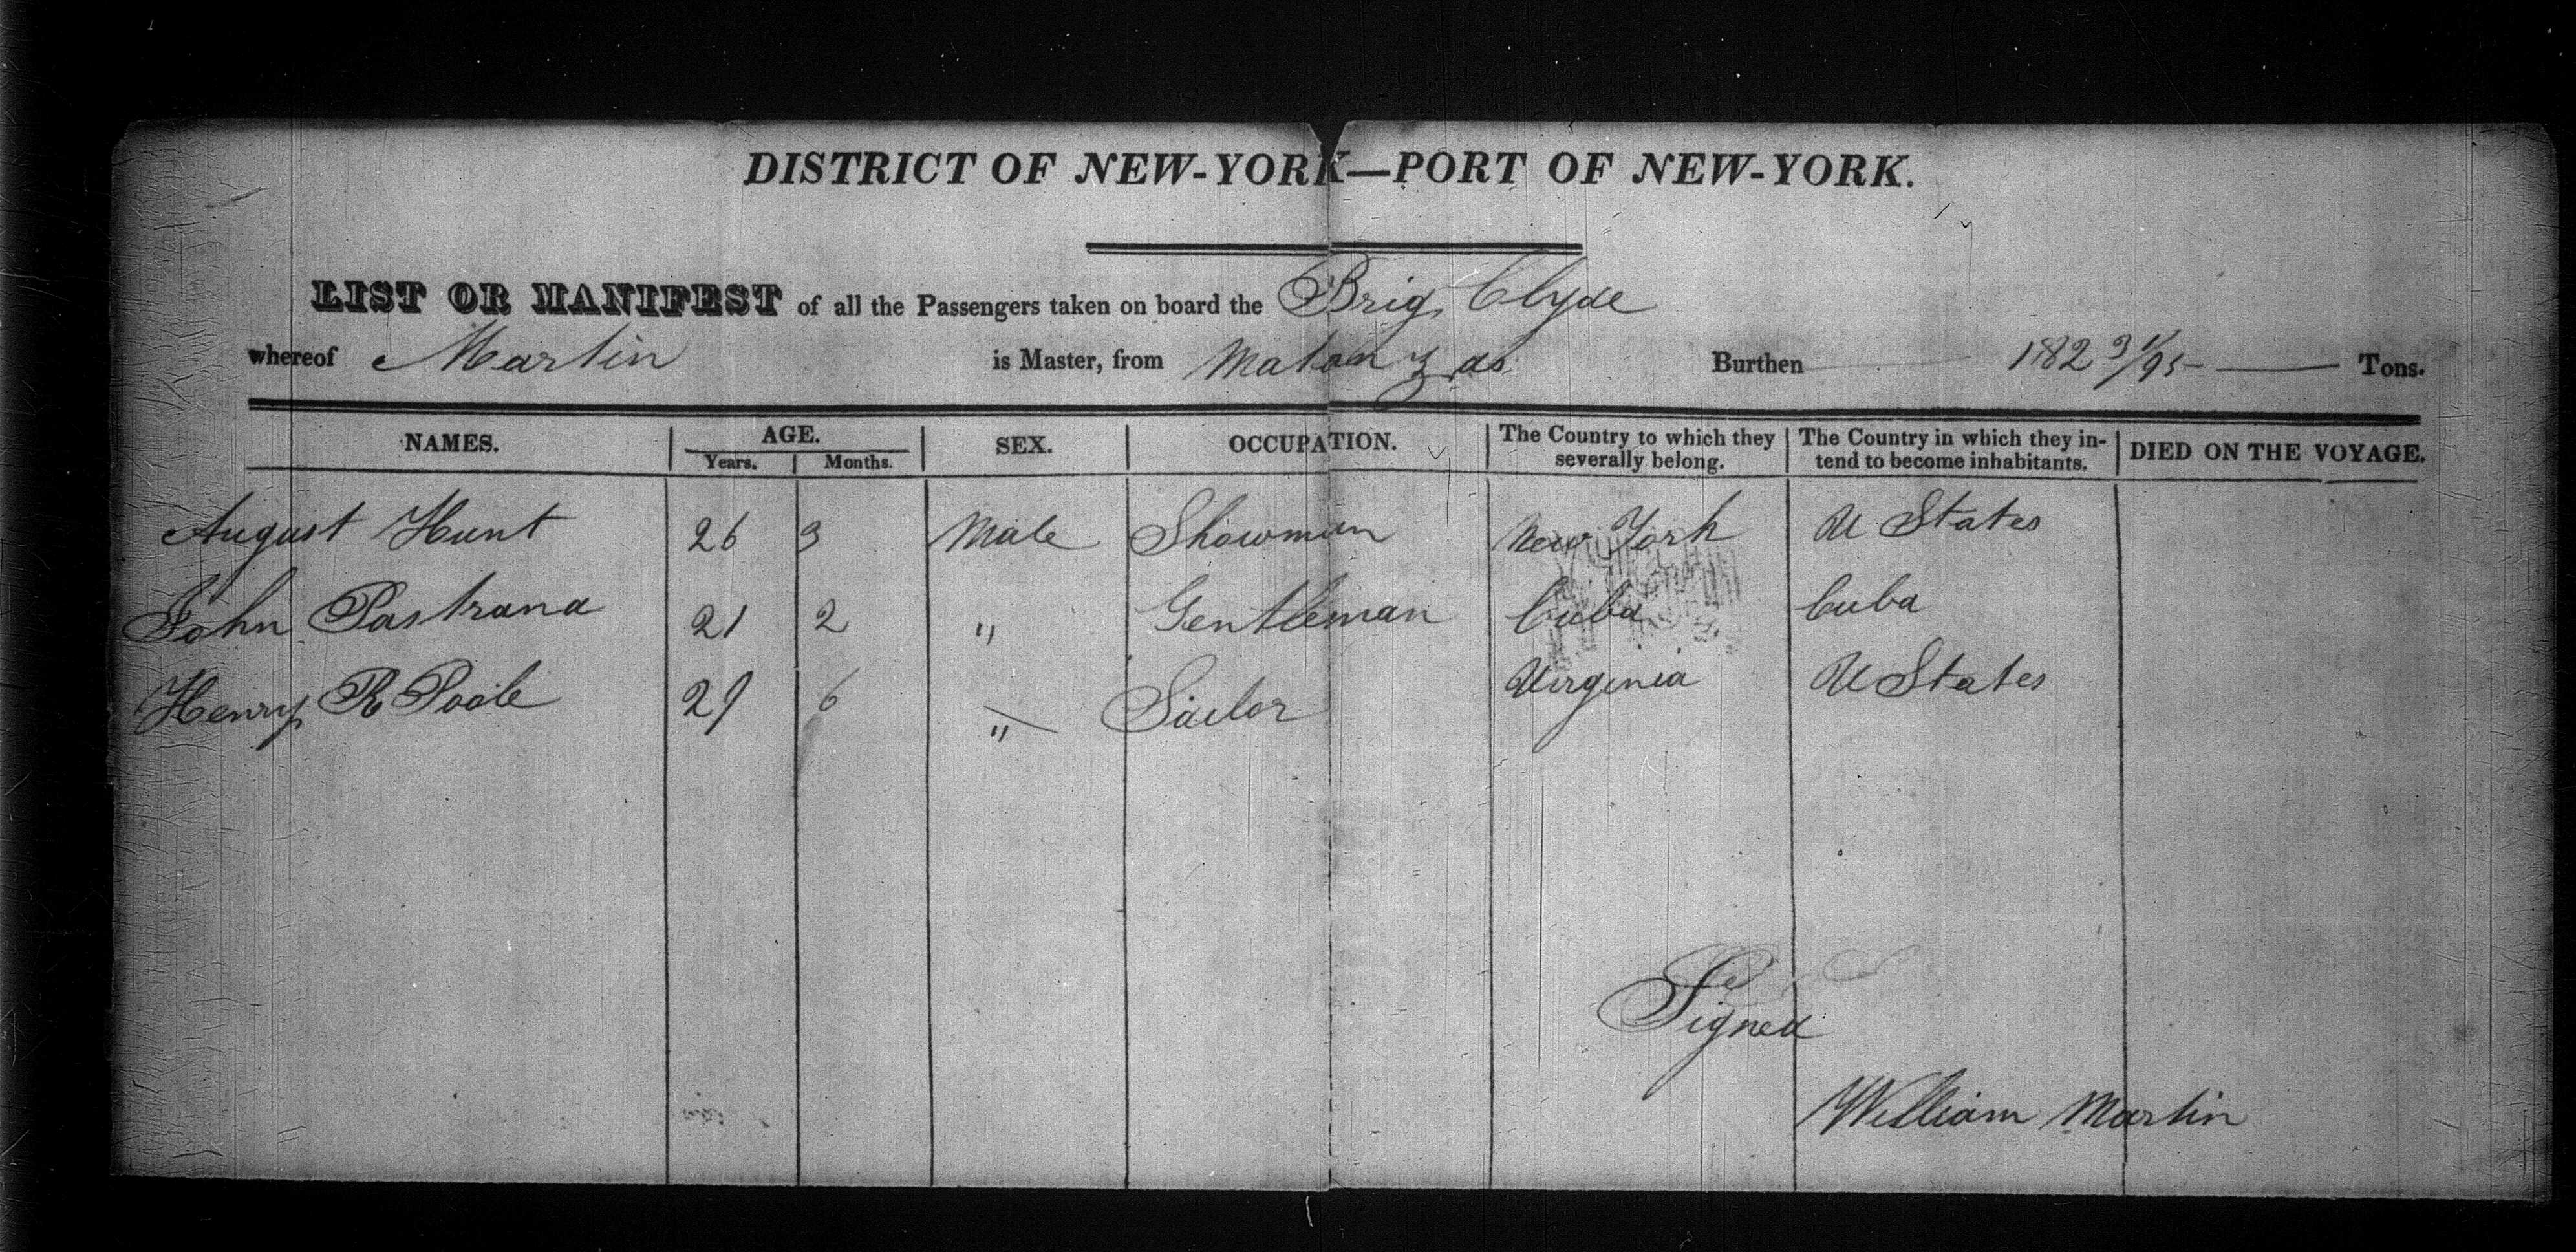 DISTRICT OF NEW-YORK—PORT OF NEW-YORK.
LIST OR MANIFEST of all the Passengers taken on board the Brig Clyde
whereof Martin is Master, from Matanzas Burthen 182 31/95 Tons.
NAMES. AGE. Years. Months. SEX. OCCUPATION. The Country to which they severally belong. The Country in which they intend to become inhabitants. DIED ON THE VOYAGE.
August Hunt 26 3 Male Showman New York U States
John Pastrana 21 2 " Gentleman Cuba Cuba
Henry R Poole 29 6 " Sailor Virginia U States
Signed
William Martin